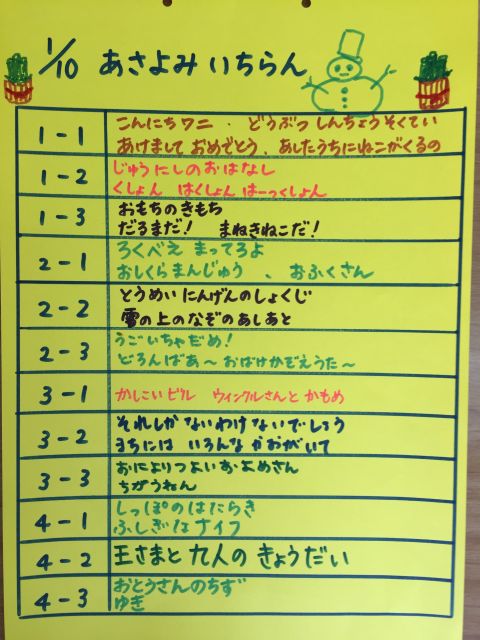 1/10 あさよみ いちらん
1-1
こんにちワニ ・ どうぶつ しんちょうそくてい
あけまして おめでとう、あしたうちにねこがくるの
1-2
じゅうにしのおはなし
くしょん はくしょん はーっくしょん
1-3
おもちのきもち
だるまだ! まねきねこだ!
2-1
ろくべえ まってろよ
おしくらまんじゅう 、 おふくさん
2-2
とうめいにんげんのしょくじ
雪の上のなぞのあしあと
2-3
うごいちゃだめ!
どろんばあ〜おばけかぞえうた〜
3-1
かしこいビル ウィンクルさんと かもめ
3-2
それしか ないわけ ないでしょう
まちには いろんな かおがいて
3-3
おによりつよいおよめさん
ちがうねん
4-1
しっぽのはたらき
ふしぎなナイフ
4-2
王さまと 九人の きょうだい
4-3
おとうさんのちず
ゆき